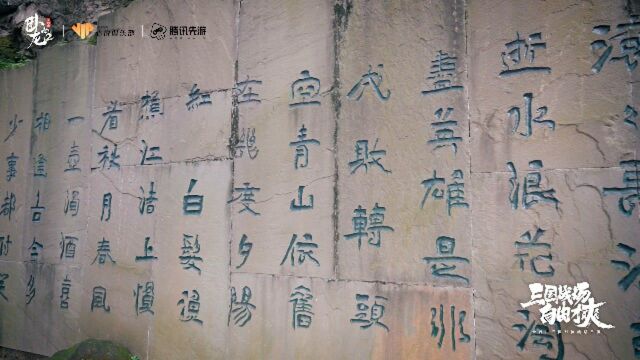 卧龙吟
腾讯先游
滚々長江東
逝水浪花淘
盡英雄是非
成敗轉頭
空青山依舊
在幾度夕陽
紅 白髮漁
樵江渚上慣
看秋月春風
一壺濁酒喜
相逢古今多
少事都付笑
三国战场
自由才爽